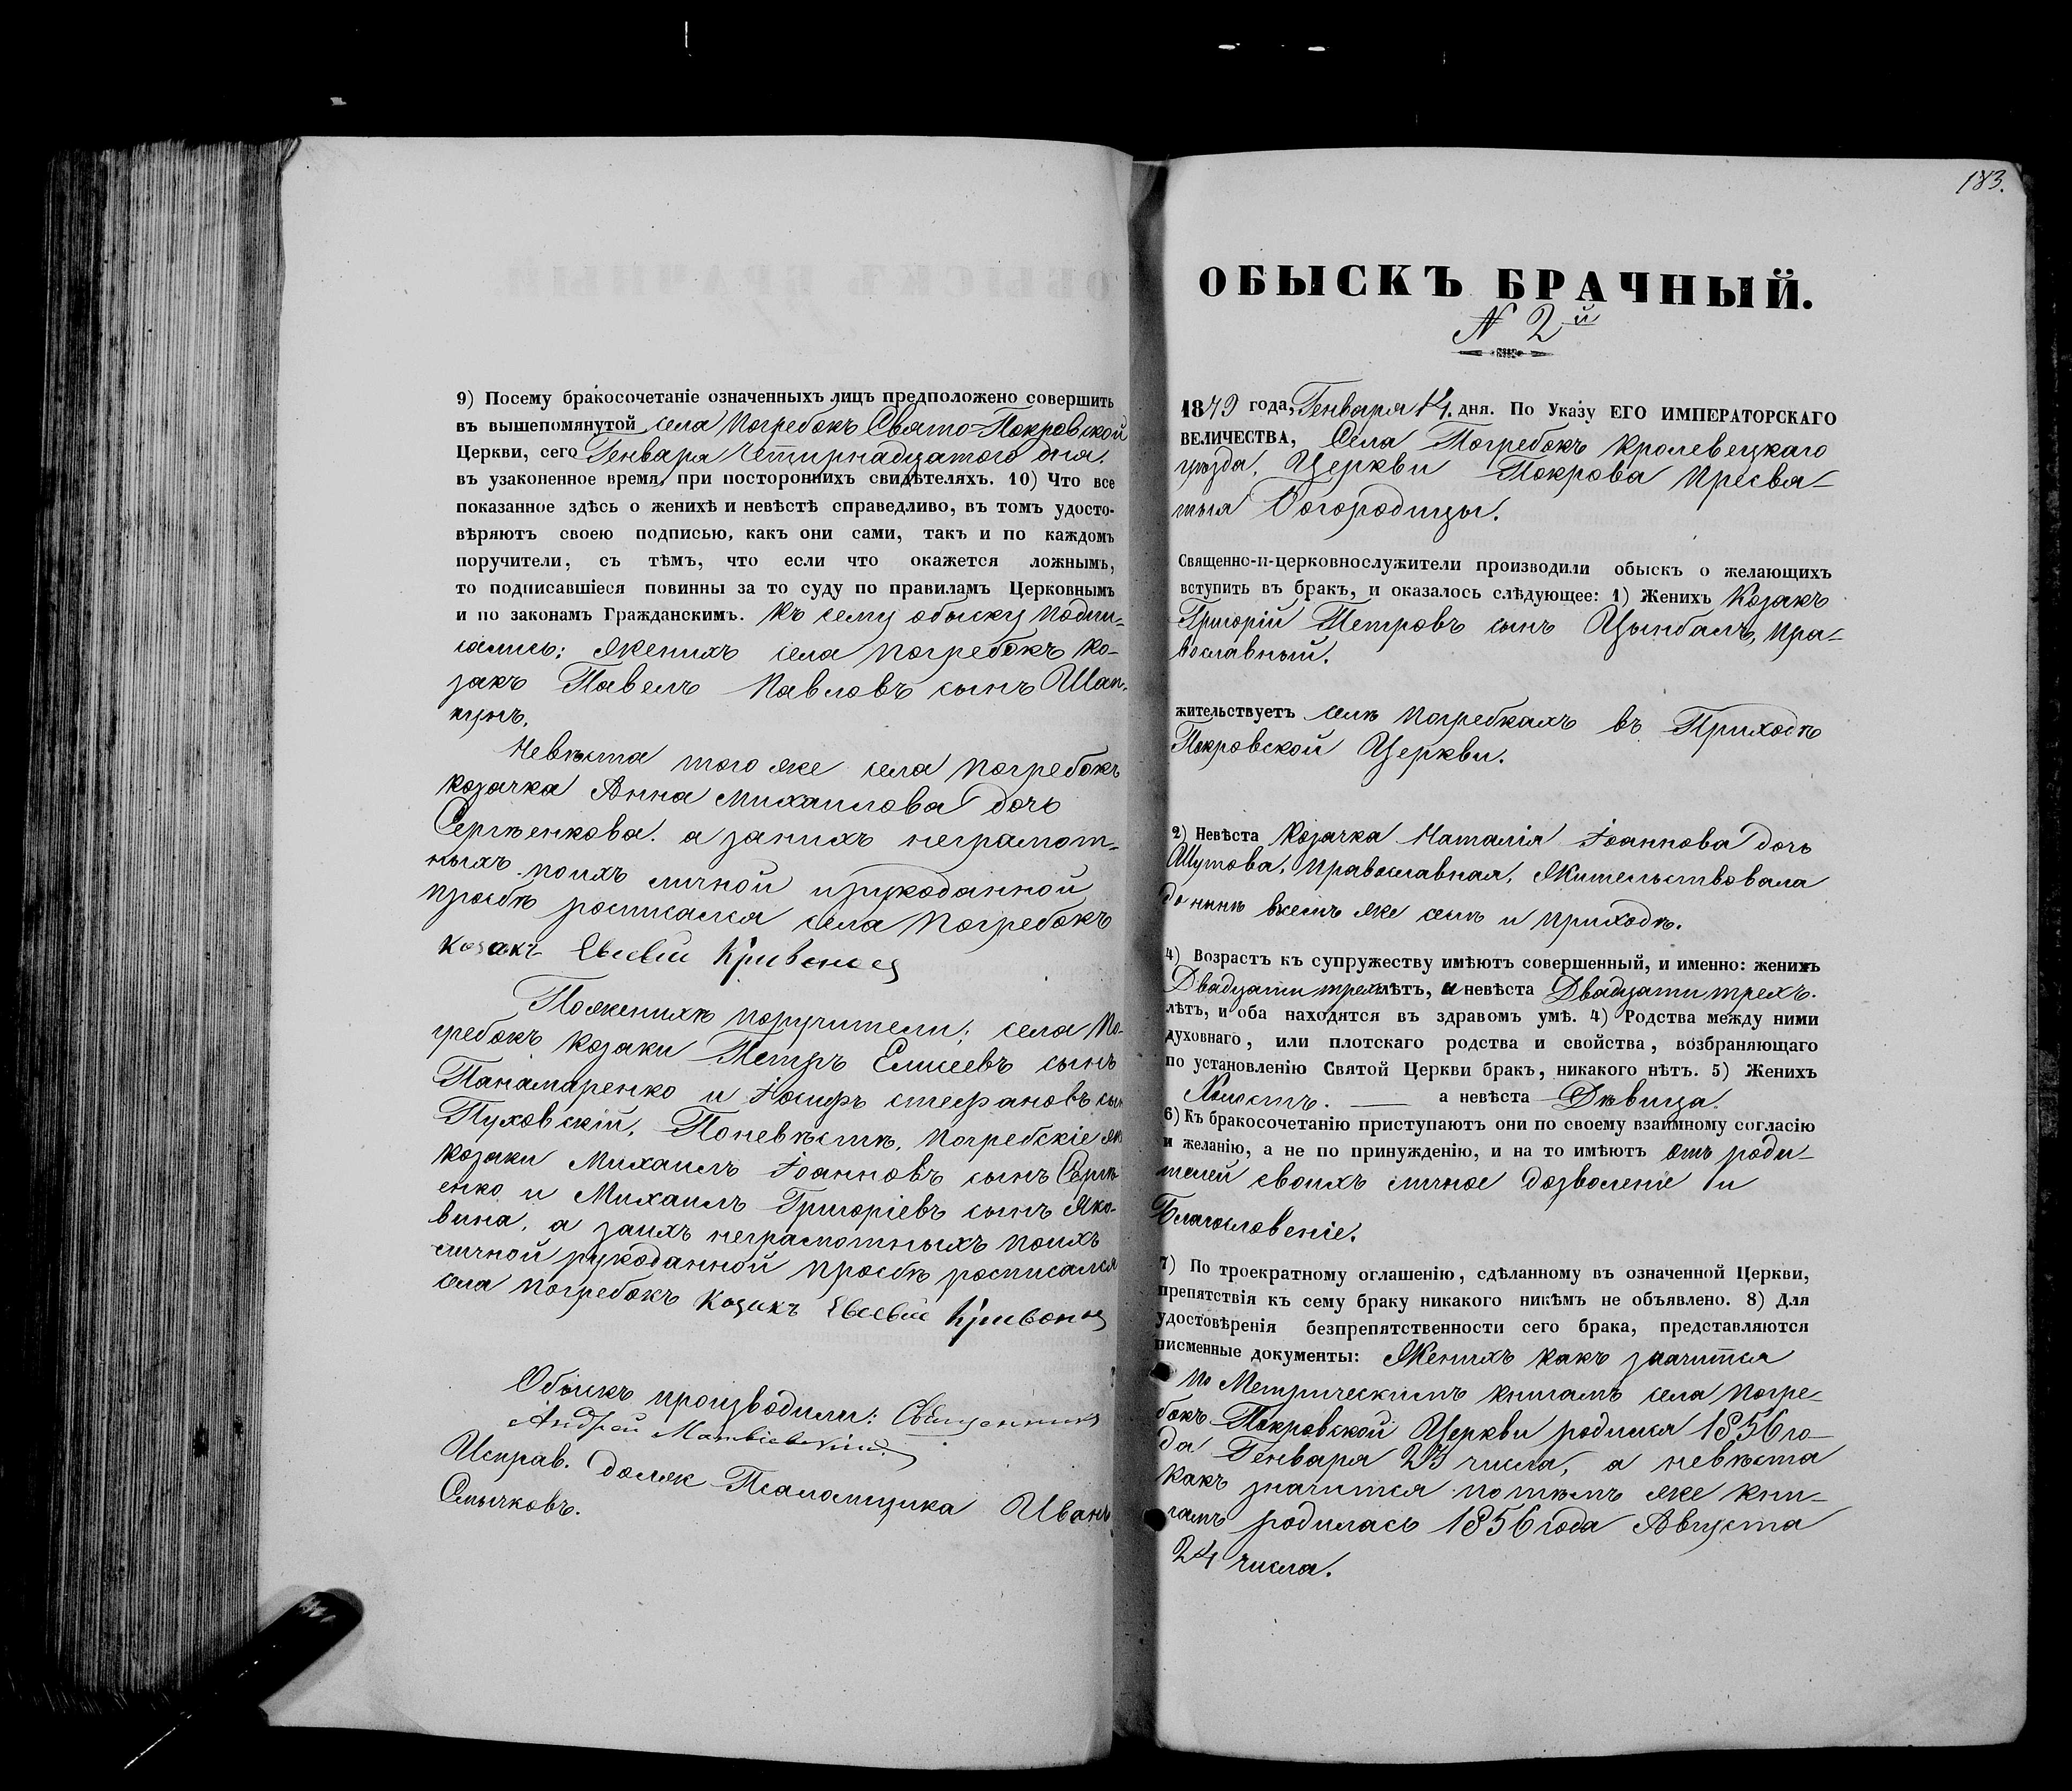 9) Посему бракосочетаніе означенныхъ лицъ предположено совершить
въ вышепомянутой села Погребокъ Свято-Покровской
Церкви, сего Генваря Четырнадцатого дня.
въ узаконенное время, при постороннихъ свидѣтеляхъ. 10) Что все
показанное здѣсь о женихѣ и невѣстѣ справедливо, въ томъ удосто-
вѣряютъ своею подписью, какъ они сами, такъ и по каждомъ
поручители, съ тѣмъ, что если что окажется ложнымъ,
то подписавшіеся повинны за то суду по правиламъ Церковнымъ
и по законамъ Гражданскимъ. Къ сему обыску подпи-
сались: Женихъ села Погребокъ ко-
закъ Павелъ Павловъ сынъ Шап-
кунъ.
Невѣста того же села Погребокъ
козачка Анна Михаилова дочь
Сергѣенкова. а занихъ неграмот-
ныхъ поихъ личной и рукоданной
просбѣ росписался села Погребокъ
козакъ Евсевій
Поженихѣ поручители; села По-
гребокъ козаки Петръ Елисеевъ сынъ
Панамаренко и Іосифъ Стефановъ сын
Пуховскій. Поневѣстѣ, Погребскіе же
козаки Михаилъ Іоанновъ сынъ Сергѣ
енко и Михаилъ Григоріевъ сынъ Яко-
вина. а заихъ неграмотныхъ поихъ
личной рукоданной просбѣ росписался
села Погребокъ козакъ Евсевій
Обыскъ производили: Священникъ
Андрей Матвіевскій
Исправ. долж Псаломщика Иванъ
Смычковъ.
183.
ОБЫСКЪ БРАЧНЫЙ.
N 2й
1879 года, Генваря 14. дня. По Указу ЕГО ИМПЕРАТОРСКАГО
ВЕЛИЧЕСТВА, Села Погребокъ Кролевецкаго
уѣзда, Церкви Покрова Пресвя-
тыя Богородицы.
Священно-и-церковнослужители производили обыскъ о желающихъ
вступить въ бракъ, и оказалось слѣдующее: 1) Женихъ Козакъ
Григорій Петровъ сынъ Цынбалъ, Пра-
вославный.
жительствуетъ селѣ Погребкахъ въ Приходѣ
Покровской Церкви.
2) Невѣста Козачка Наталія Іоаннова дочь
Шутова, Православная, Жительствовала
до нынѣ всемъ же селѣ и приходѣ.
4) Возрастъ къ супружеству имѣютъ совершенный, и именно: женихъ
Двадцати трехъ лѣтъ, и невѣста Двадцати трехъ.
лѣтъ, и оба находятся въ здравомъ умѣ. 4) Родства между ними
духовнаго, или плотскаго родства и свойства, возбраняющаго
по установленію Святой Церкви бракъ, никакого нѣтъ. 5) Женихъ
Холостъ. — а невѣста Дѣвица.
6) Къ бракосочетанію приступаютъ они по своему взаимному согласію
и желанію, а не по принужденію, и на то имѣютъ отъ роди-
телей своихъ личное дозволеніе и
Благословеніе.
7) По троекратному оглашенію, сдѣланному въ означенной Церкви,
препятствія къ сему браку никакого никѣмъ не объявлено. 8) Для
удостовѣренія безпрепятственности сего брака, представляются
писменные документы: Женихъ какъ значится
по Метрическимъ книгамъ села Погре-
бокъ Покровской Церкви родился 1856 го-
да Генваря числа, а невѣста
какъ значится потѣмъ же кни-
гамъ родилась 1856 года Августа
24 числа.